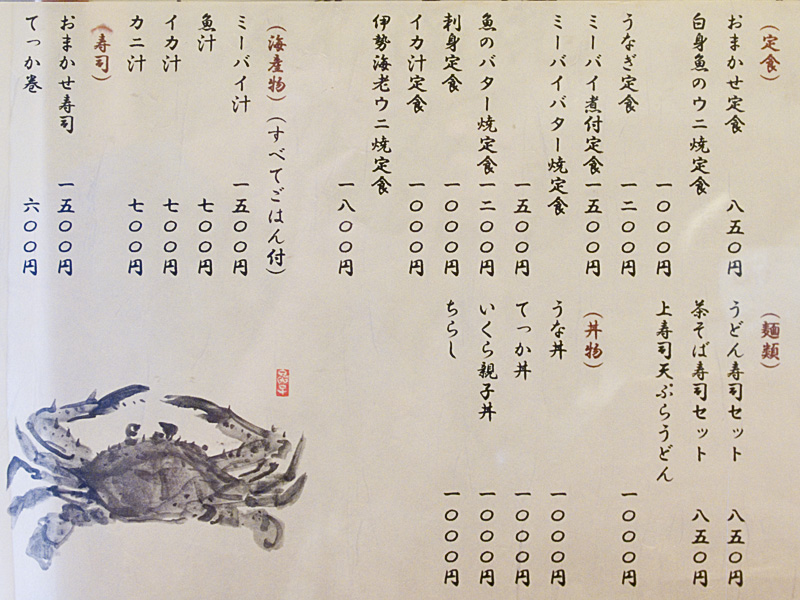 (定食)
おまかせ定食 八五〇円
白身魚のウニ焼定食
一〇〇〇円
うなぎ定食 一二〇〇円
ミーバイ煮付定食 一五〇〇円
ミーバイバター焼定食
一五〇〇円
魚のバター焼定食 一二〇〇円
刺身定食 一〇〇〇円
イカ汁定食 一〇〇〇円
伊勢海老ウニ焼定食
一八〇〇円
(海産物)(すべてごはん付)
ミーバイ汁 一五〇〇円
魚汁 七〇〇円
イカ汁 七〇〇円
カニ汁 七〇〇円
(寿司)
おまかせ寿司 一五〇〇円
てっか巻 六〇〇円
(麺類)
うどん寿司セット 八五〇円
茶そば寿司セット 八五〇円
上寿司天ぷらうどん
一〇〇〇円
(丼物)
うな丼 一〇〇〇円
てっか丼 一〇〇〇円
いくら親子丼 一〇〇〇円
ちらし 一〇〇〇円